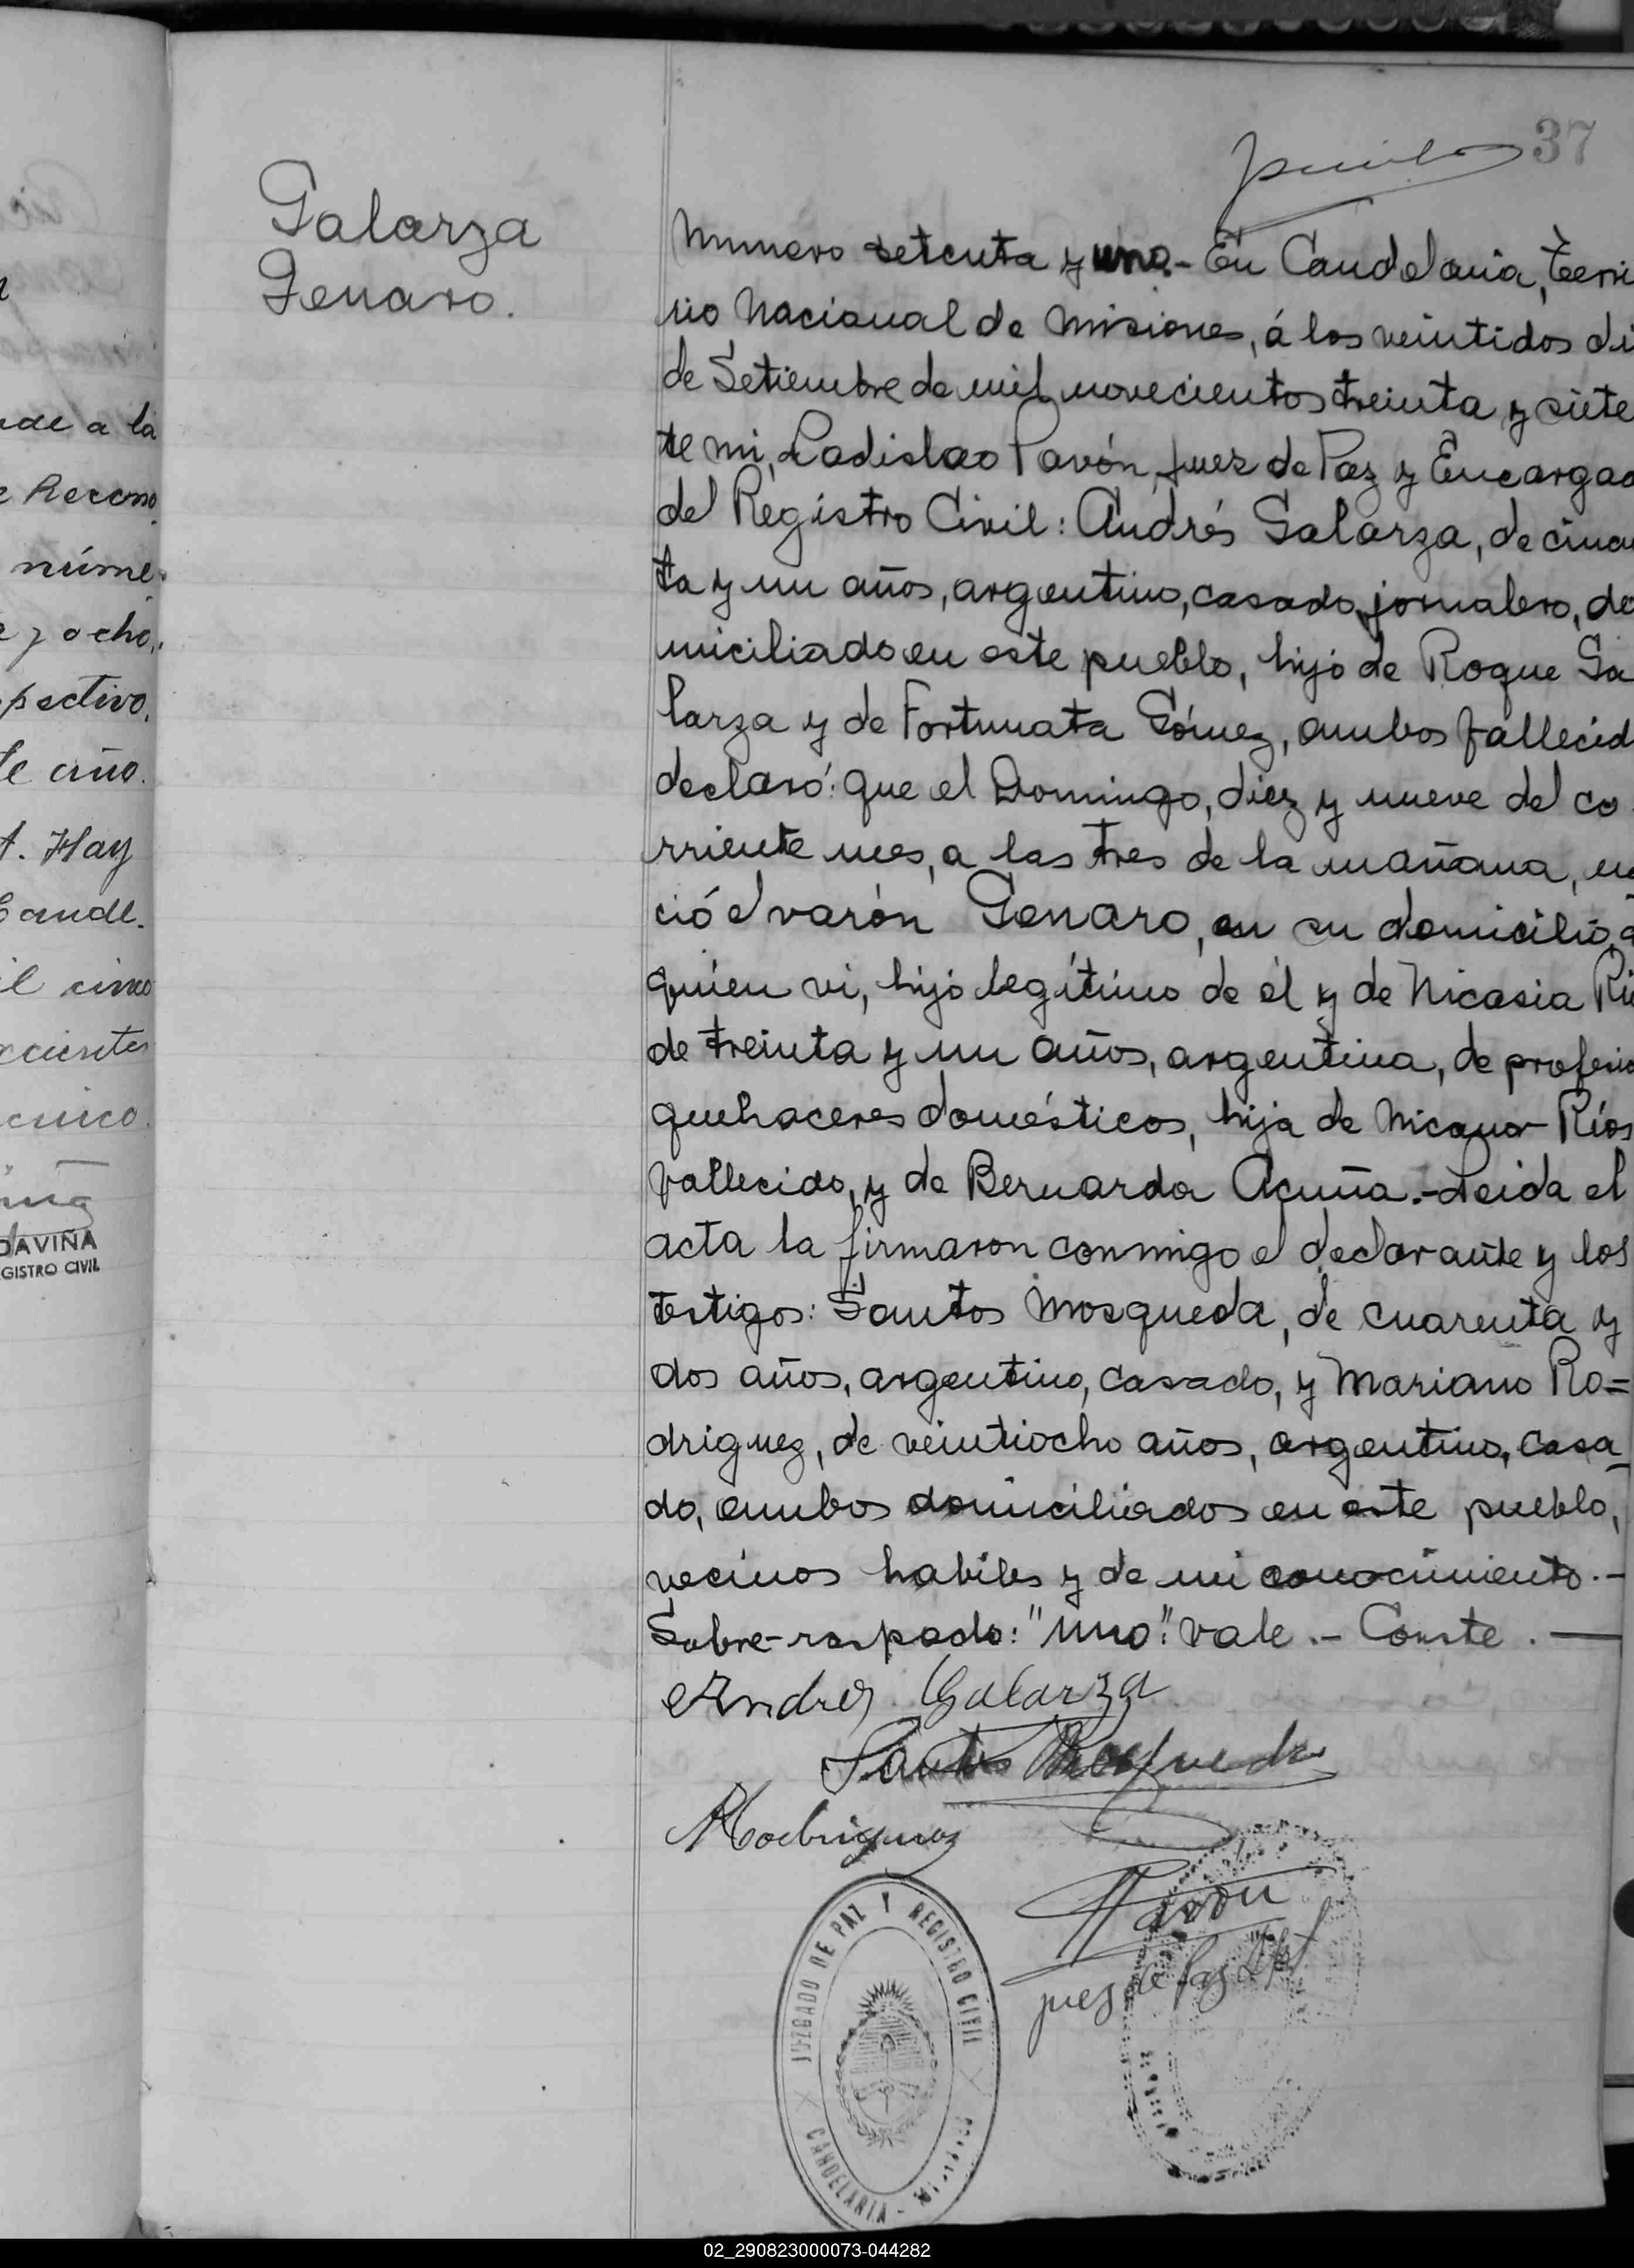 37
Galarza
Genaro.
Numero setenta y uno.- En Candelaria, Terri
rio Nacional de Misiones, á los veintidos di
de Setiembre de mil novecientos treinta y siete
te mi, Ladislao Pavón Juez de Paz y Encargad
del Registro Civil: Andrés Galarza, de cincu
ta y un años, argentino, casado, jornalero, do
miciliado en este pueblo, hijo de Roque Ga
larza y de Fortunata Gómez, ambos fallecid
declaró: que el Domingo, diez y nueve del co
rriente mes, a las tres de la mañana, na
ció el varón Genaro, en su domicilio, a
quien vi, hijo legítimo de él y de Nicasia Rí
de treinta y un años, argentina, de profesio
quehaceres domésticos, hija de Nicanor Ríos
fallecido, y de Bernarda Acuña.- Leida el
acta la firmaron conmigo el declarante y los
testigos: Santos Mosqueda, de cuarenta y
dos años, argentino, casado, y Mariano Ro=
driguez, de veintiocho años, argentino, casa_
do, ambos domiciliados en este pueblo,
vecinos habiles y de mi conocimiento.-
Sobre-raspado: "uno": vale.- Conste.—
Andres Galarza
Santos Mosqueda
MRodriguez
Pavón
juez de Paz
JUZGADO DE PAZ Y REGISTRO CIVIL
CANDELARIA - Misiones
ade a la
núme.
e y ocho.
pectivo.
te año.
A. Hay
Cande.
il cinco
cinco.
DAVIÑA
GISTRO CIVIL
02_290823000073-044282